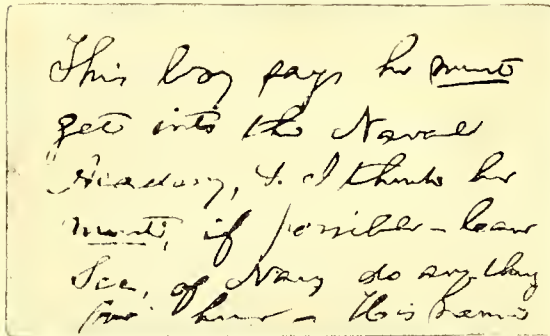 This boy says he must
get into the Naval
Academy, & I think he
must, if possible – can
Sec. of Navy do anything
for him – His name